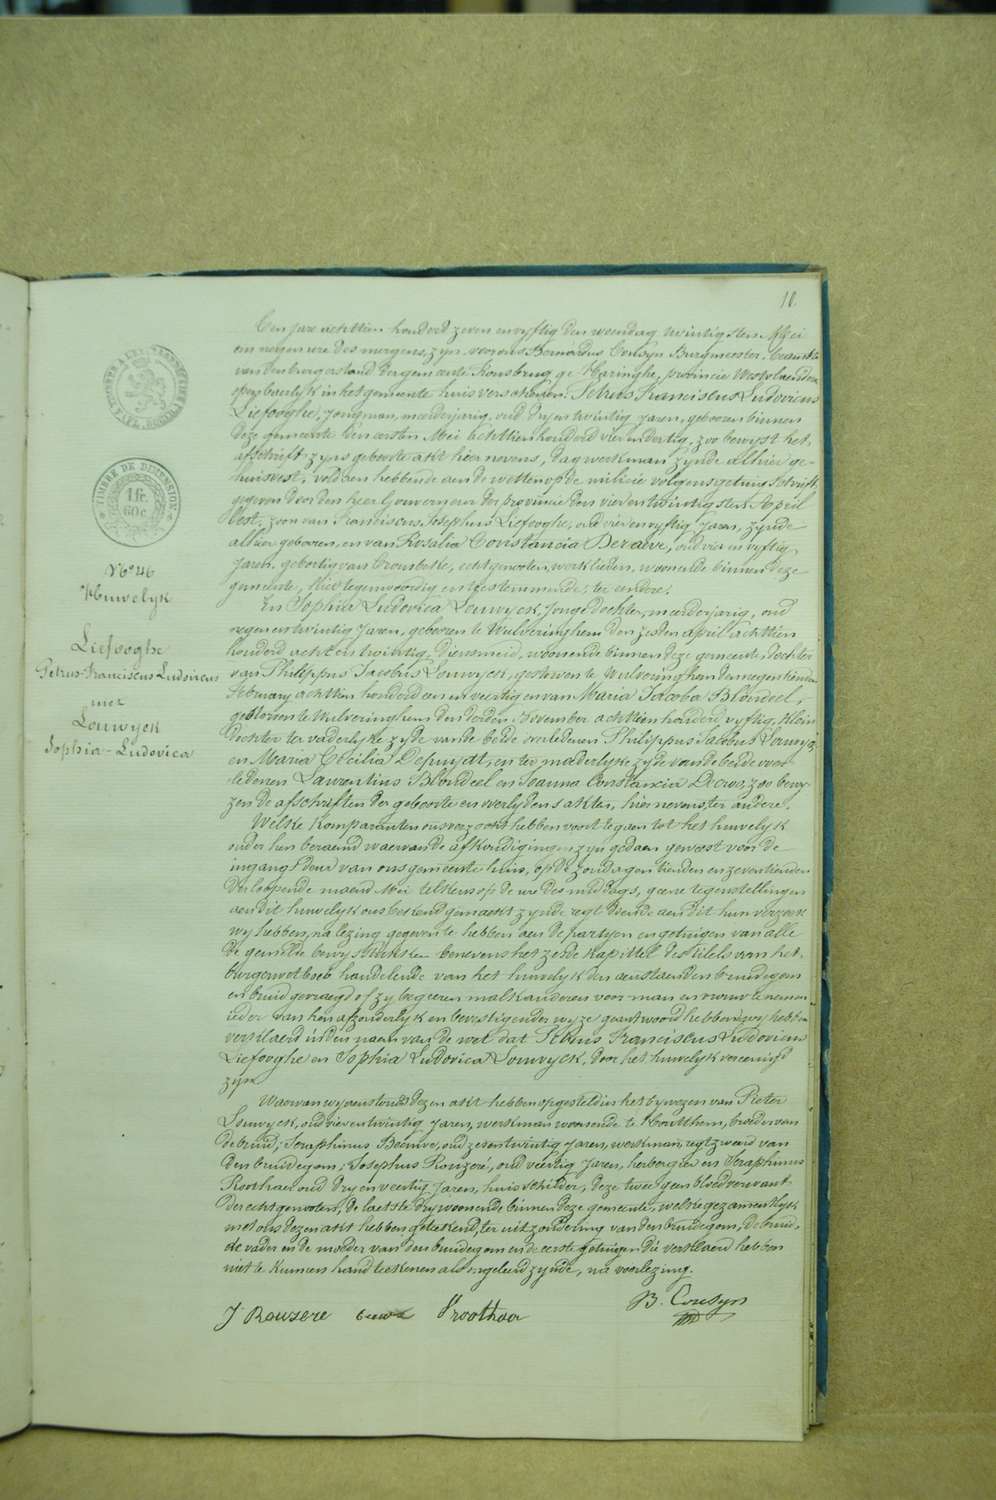 18
TIMBRE DE DIMENSION
1 fr.
60 c.
N° 46
Huwelyk
Liefooghe
Petrus-Franciscus Ludovicus
met
Louwyck
Sophia-Ludovica
Een jare achttien honderd zeven en vyftig den woendag twintigsten Mei
om negen ure des morgens, zyn voor ons Bernardus Cousyn Burgmeester
van den burgerstand der gemeente Rousbrugge Haringhe, provincie Westvlaenderen
openbaerlyk in het gemeente huis verschenen: Petrus Franciscus Ludovicus
Liefooghe, jongman, meerderjarig, oud dryentwintig jaren, geboren binnen
deze gemeente den eersten Mei achttien honderd vier en dertig, zoo bewyst het
afschrift zyns geboorte akt hier nevens, dagwerkman zynde alhier ge-
huisvest, voldaen hebbende aen de wetten op de milicie volgens getuigschrift
gegeven door den heer Gouverneur der provincie den vier en twintigsten April
lest, zoon van Franciscus Josephus Liefooghe, oud vier en vyftig jaren, zynde
alhier geboren, en van Rosalia Constancia Deraeve, oud vier en vyftig
jaren, geboortig van Crombeke, echtgenoten, werklieden, woonende binnen deze
gemeente, hier tegenwoordig en toestemmende; ter eendere.
En Sophia Ludovica Louwyck, jonge dochter, meerderjarig, oud
negen en twintig jaren, geboren te Wulveringhem den zesden april achttien
honderd acht en twintig, dienstmeid, woonende binnen deze gemeente, dochter
van Philippus Jacobus Louwyck, gestorven te Wulveringhem den negentienden
february achttien honderd een en veertig en van Maria Jacoba Blondeel,
gestorven te Wulveringhem den derden November achttien honderd vyftig, klein
dochter ter vaderlyke zyde van de beide overledenen Philippus Jacobus Louwyck
en Maria Cecilia Depuydt, en ter moederlyke zyde van de beide over-
ledenen Laurentius Blondeel en Joanna Constancia Decroo, zoo bewy-
zen de afschriften der geboorte en overlydens akten, hier nevens, ter andere.
Welke komparanten ons verzocht hebben voort te gaen tot het huwelyk
onder hun beraemd waervan de afkondigingen zyn gedaen geweest voor de
ingangsdeur van ons gemeente huis, op de zondagen tienden en zeventienden
der loopende maend Mei telkens op de ure des middags, geene tegenstellingen
aen dit huwelyk ons bekend gemaekt zynde regt doende aen dit hun verzoek
wy hebben, na lezing gegeven te hebben aen de partyen en getuigen van alle
de gemelde bewysstukken benevens het zesde kapittel des titels van het
burgerwetboek handelende van het huwelyk den aenstaenden bruidegom
en bruid gevraegd of zy begeeren malkanderen voor man en vrouw te nemen
ieder van hen afzonderlyk en bevestigender wyze geantwoord hebbende wy hebben
verklaerd in den naem van de wet dat Petrus Franciscus Ludovicus
Liefooghe en Sophia Ludovica Louwyck, door het huwelyk vereenigd
zyn
Waervan wy aenstonds dezen akt hebben opgesteld in het bywezen van Pieter
Louwyck, oud vierentwintig jaren, werkman woonende te Houthem, broeder van
de bruid, Seraphinus Beauve, oud zesentwintig jaren, werkman, regtzweer van
den bruidegom; Josephus Rouzeré, oud veertig jaren, herbergier en Seraphinus
Roothaer oud dryenveertig jaren, huisschilder, deze twee geen bloedverwant
der echtgenooten, de laetste dry woonende binnen deze gemeente, welke gezamentlyk
met ons dezen akt hebben geteekend, ter uitzondering van den bruidegom, de bruid,
de vader en de moeder van den bruidegom en de eerste getuigen die verklaerd hebben
niet te kunnen handteekenen als ongeleerd zynde, na voorlezing.
J Rouzere Roothaer
B. Cousyn